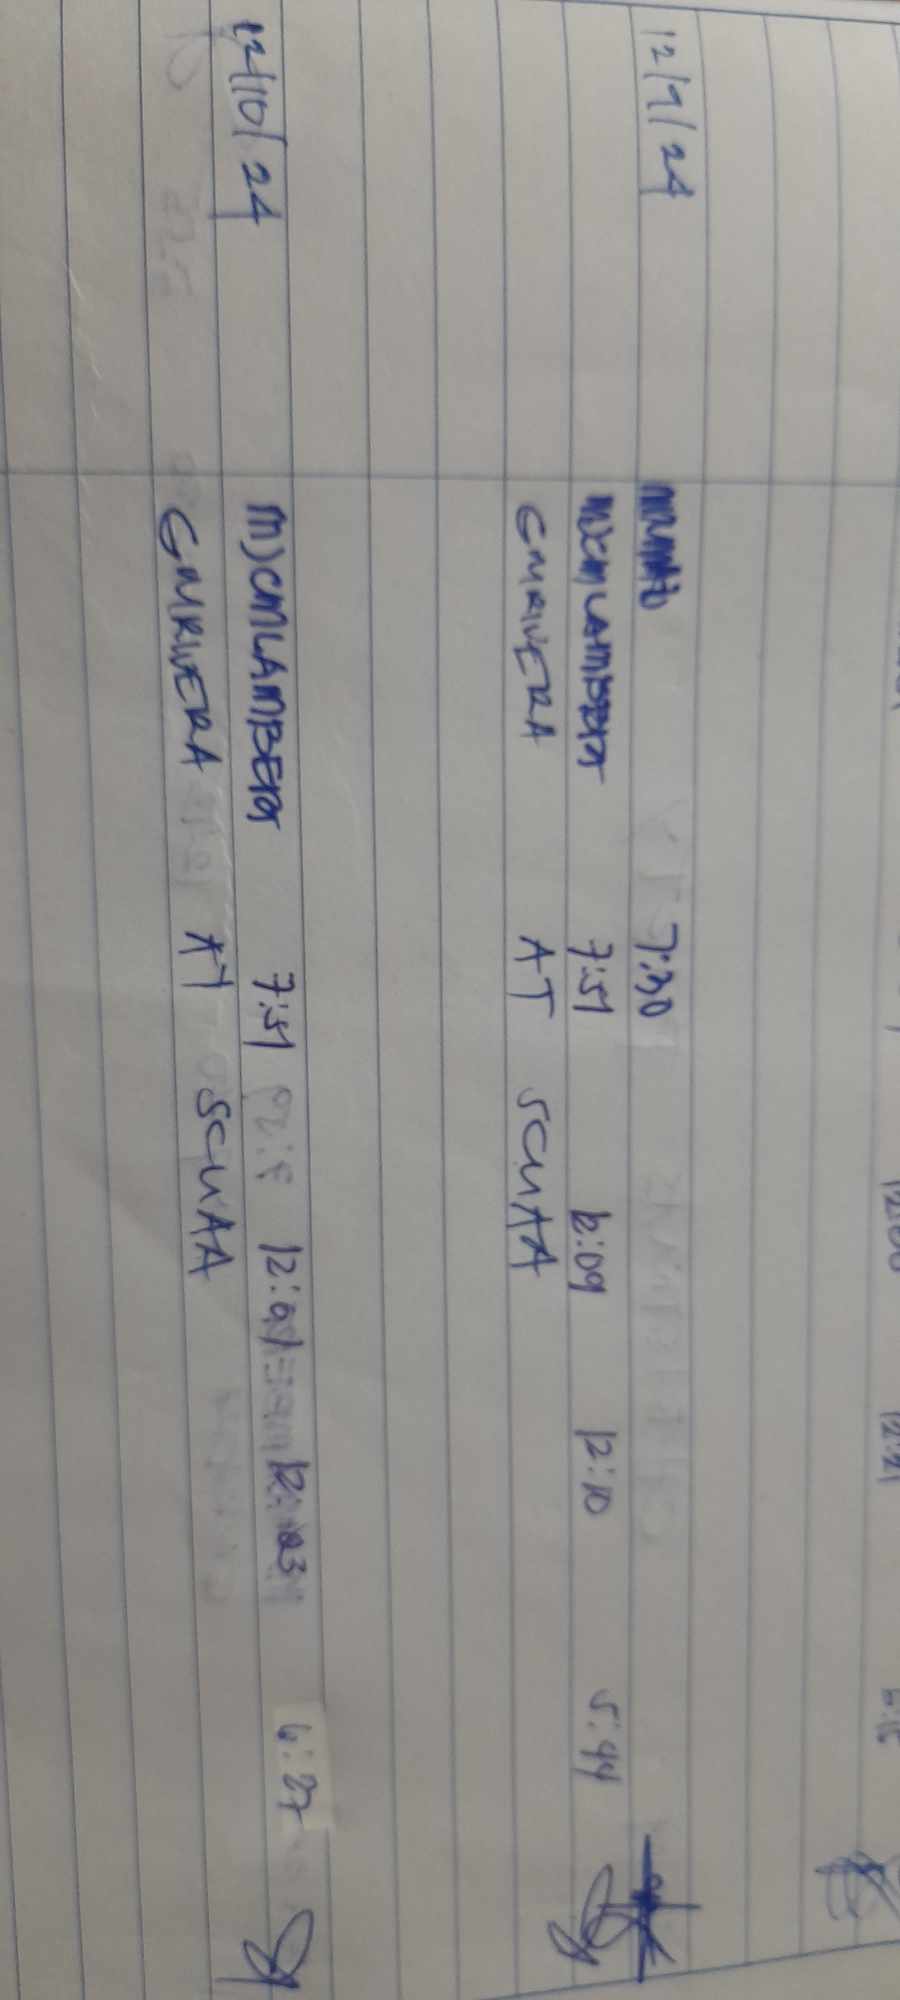 12:00 12:21
12/9/24 7:30
MJCMLAMBERT 7:51 12:09 12:10 5:44
GMRIVERA AT SCUAA
12/10/24 MJCMLAMBERT 7:51 12:01 6:27
GMRIVERA AT SCUAA